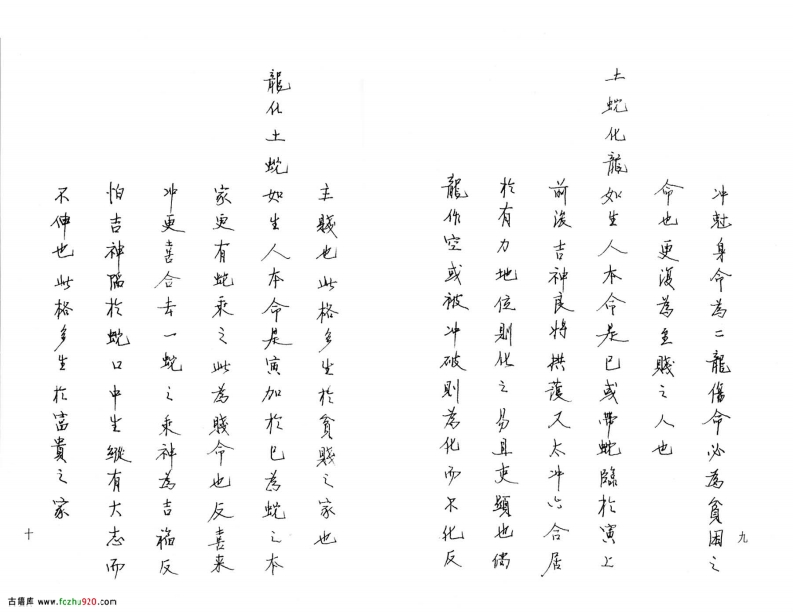 冲尅身命為二龍傷命必為貧困之
命也更復為至賤之人也
土蛇化龍如生人本命是巳或帶蛇臨於寅上
前後吉神良將拱護又太冲六合居
於有力地位則化之易且更顯也倘
龍作空或被冲破則為化而不化反
九
主賤也此格多生於貧賤之家也
龍化土蛇如生人本命是寅加於巳為蛇之本
家更有蛇乘之此為賤命也反喜來
冲更喜合去一蛇之乘神為吉福反
怕吉神陷於蛇口中生縱有大志而
不伸也此格多生於富貴之家
十
古籍库 www.fczhu920.com